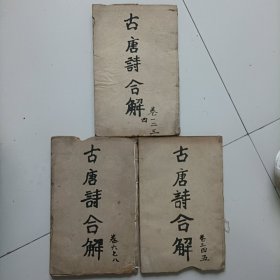 古唐詩合解
卷一二三
四
古唐詩合解
卷六七八
古唐詩合解
卷三四五